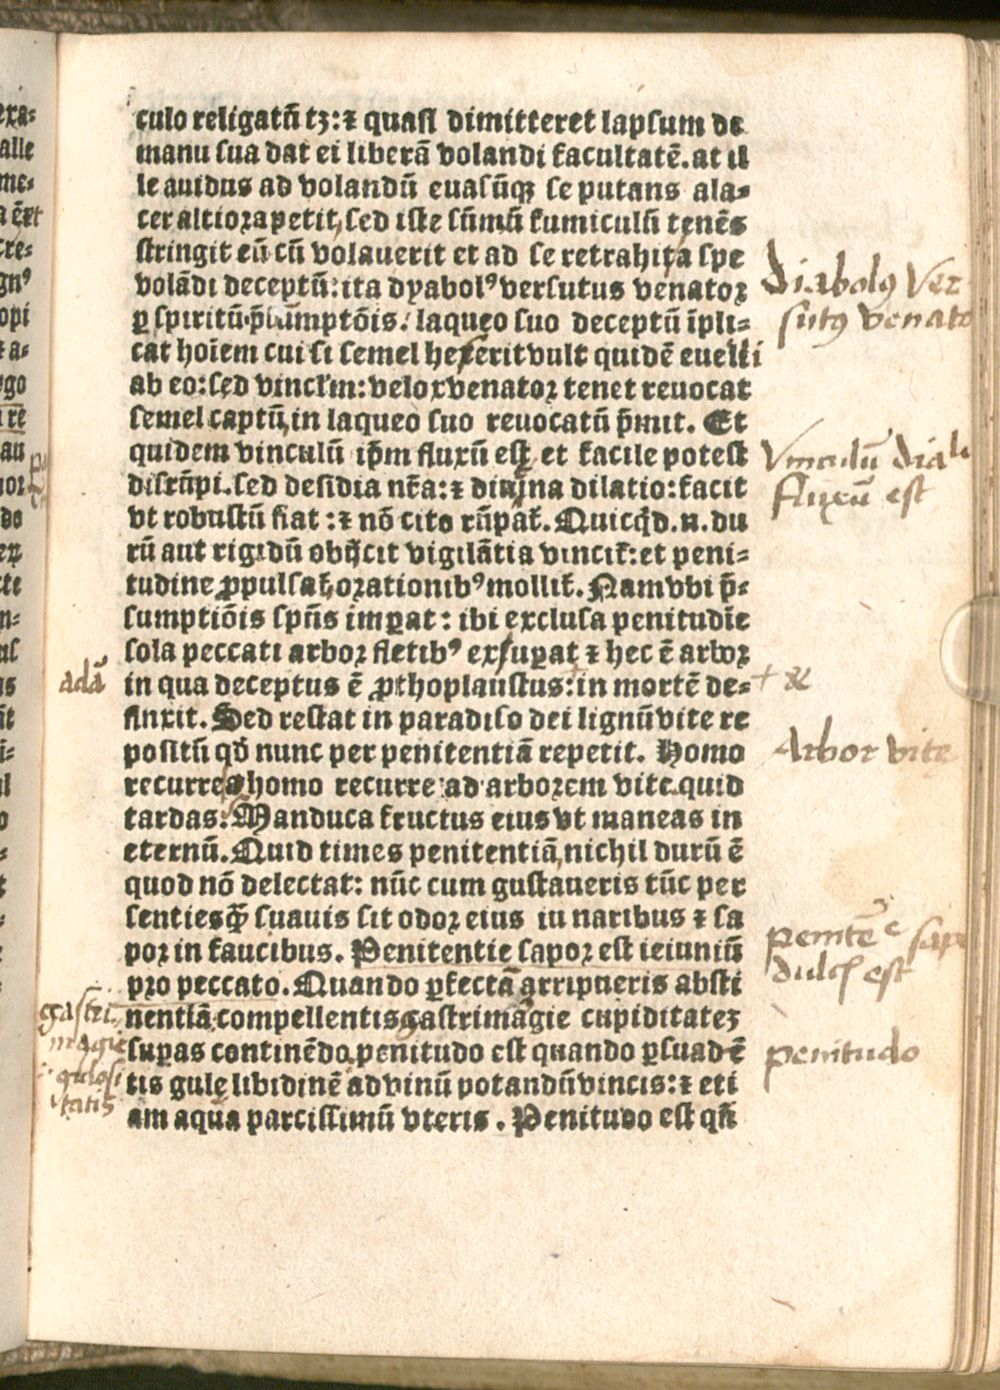 culo religatū tꝫ: ⁊ quasi dimitteret lapsum de
manu sua dat ei liberā volandi facultatē. at il
le auidus ad volandū euasūqꝫ se putans ala⸗
cer altiora petit, sed iste sūmū fumiculū tenēs
stringit eū cū volauerit et ad se retrahit a spe
volādi deceptū: ita dyabolꝰ versutus venator
ꝑ spiritū p̄sumptōis: laqueo suo deceptū īpli⸗
cat hoīem cui si semel heserit vult quidē euelli
ab eo: sed vincl'm: velox venator tenet reuocat
semel captū, in laqueo suo reuocatū p̄mit. Et
quidem vinculū ip̄m fluxū est et facile potest
disrūpi. sed desidia nr̄a: ⁊ diu na dilatio: facit
vt robustū fiat: ⁊ nō cito rūpat̄. Quicq̄d .n. du
rū aut rigidū obijcit vigilātia vincit̄: et peni⸗
tudine ꝓpulsat̄, orationibꝰ mollit̄. Nam vbi p̄⸗
sumptiōis sp̄ūs imꝑat: ibi exclusa penitudīe
sola peccati arbor fletibꝰ exsuꝑat ⁊ hec ē arbor
in qua deceptus ē ꝓthoplaustus: in mortē de⸗
fluxit. Sed restat in paradiso dei lignū vite re
positū qd̄ nunc per penitentiā repetit. Homo
recurre, homo recurre ad arborem vite. quid
tardas: Manduca fructus eius vt maneas in
eternū. Quid times penitentiā, nichil durū ē
quod nō delectat: nūc cum gustaueris tūc per
senties q̄ suauis sit odor eius in naribus ⁊ sa
por in faucibus. Penitentie sapor est ieiuniū
pro peccato. Quando ꝑfectā arripueris absti
nentiā compellentis gastrimagie cupiditateꝫ
suꝑas continēdo, penitudo est quando ꝑsuadē
tis gulę libidinē ad vinū potandū vincis: ⁊ eti
am aqua parcissimū vteris. Penitudo est qn̄
diabolꝰ Ver
sutꝰ venato
Vinculū diali
fluxū est
adā
+ &
Arbor vite
penitē e sapo
dulcis est
gastri
magie
gulosi
tatis
penitudo